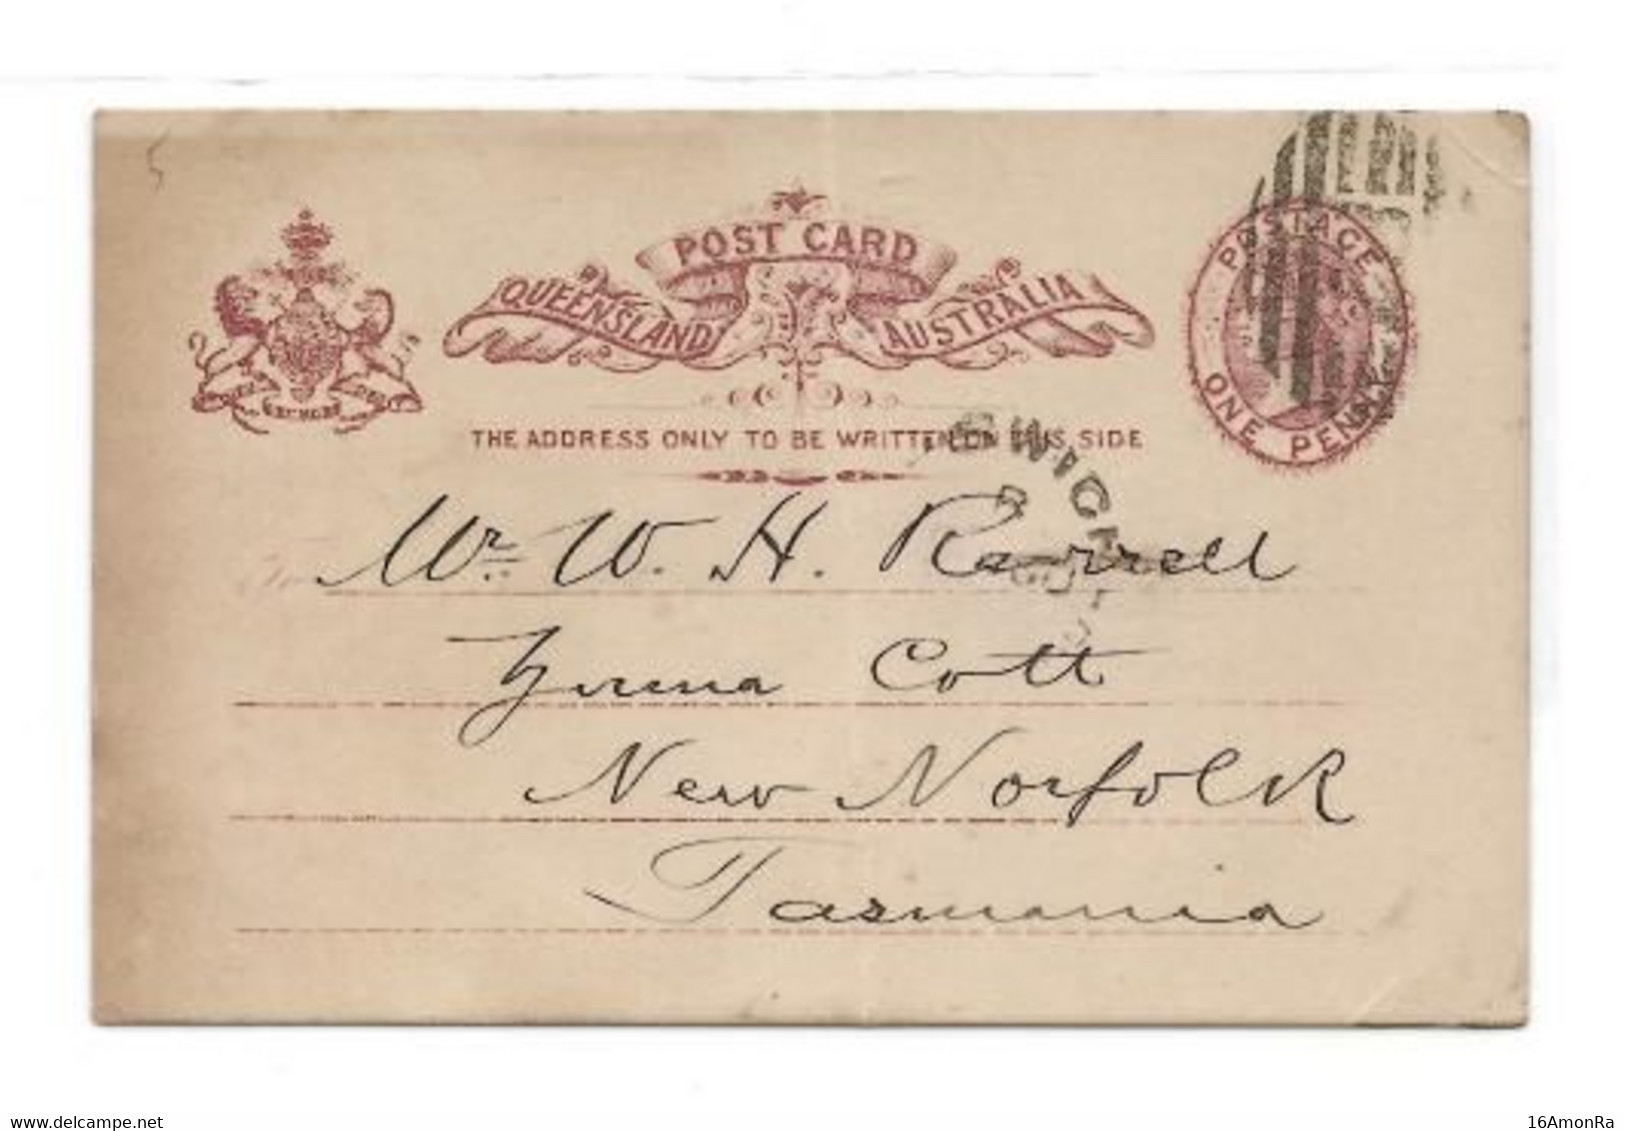 5
POST CARD
QUEENSLAND AUSTRALIA
POSTAGE
ONE PENNY
THE ADDRESS ONLY TO BE WRITTEN ON THIS SIDE
Mr. W. H.
Cott
New Norfolk
Tasmania
www.delcampe.net
16AmonRa